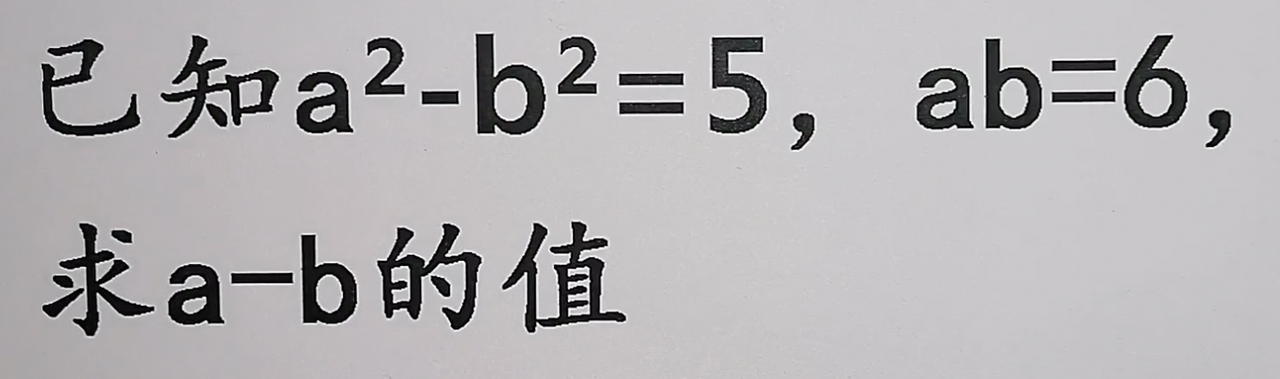 已知a²-b²=5, ab=6,
求a-b的值